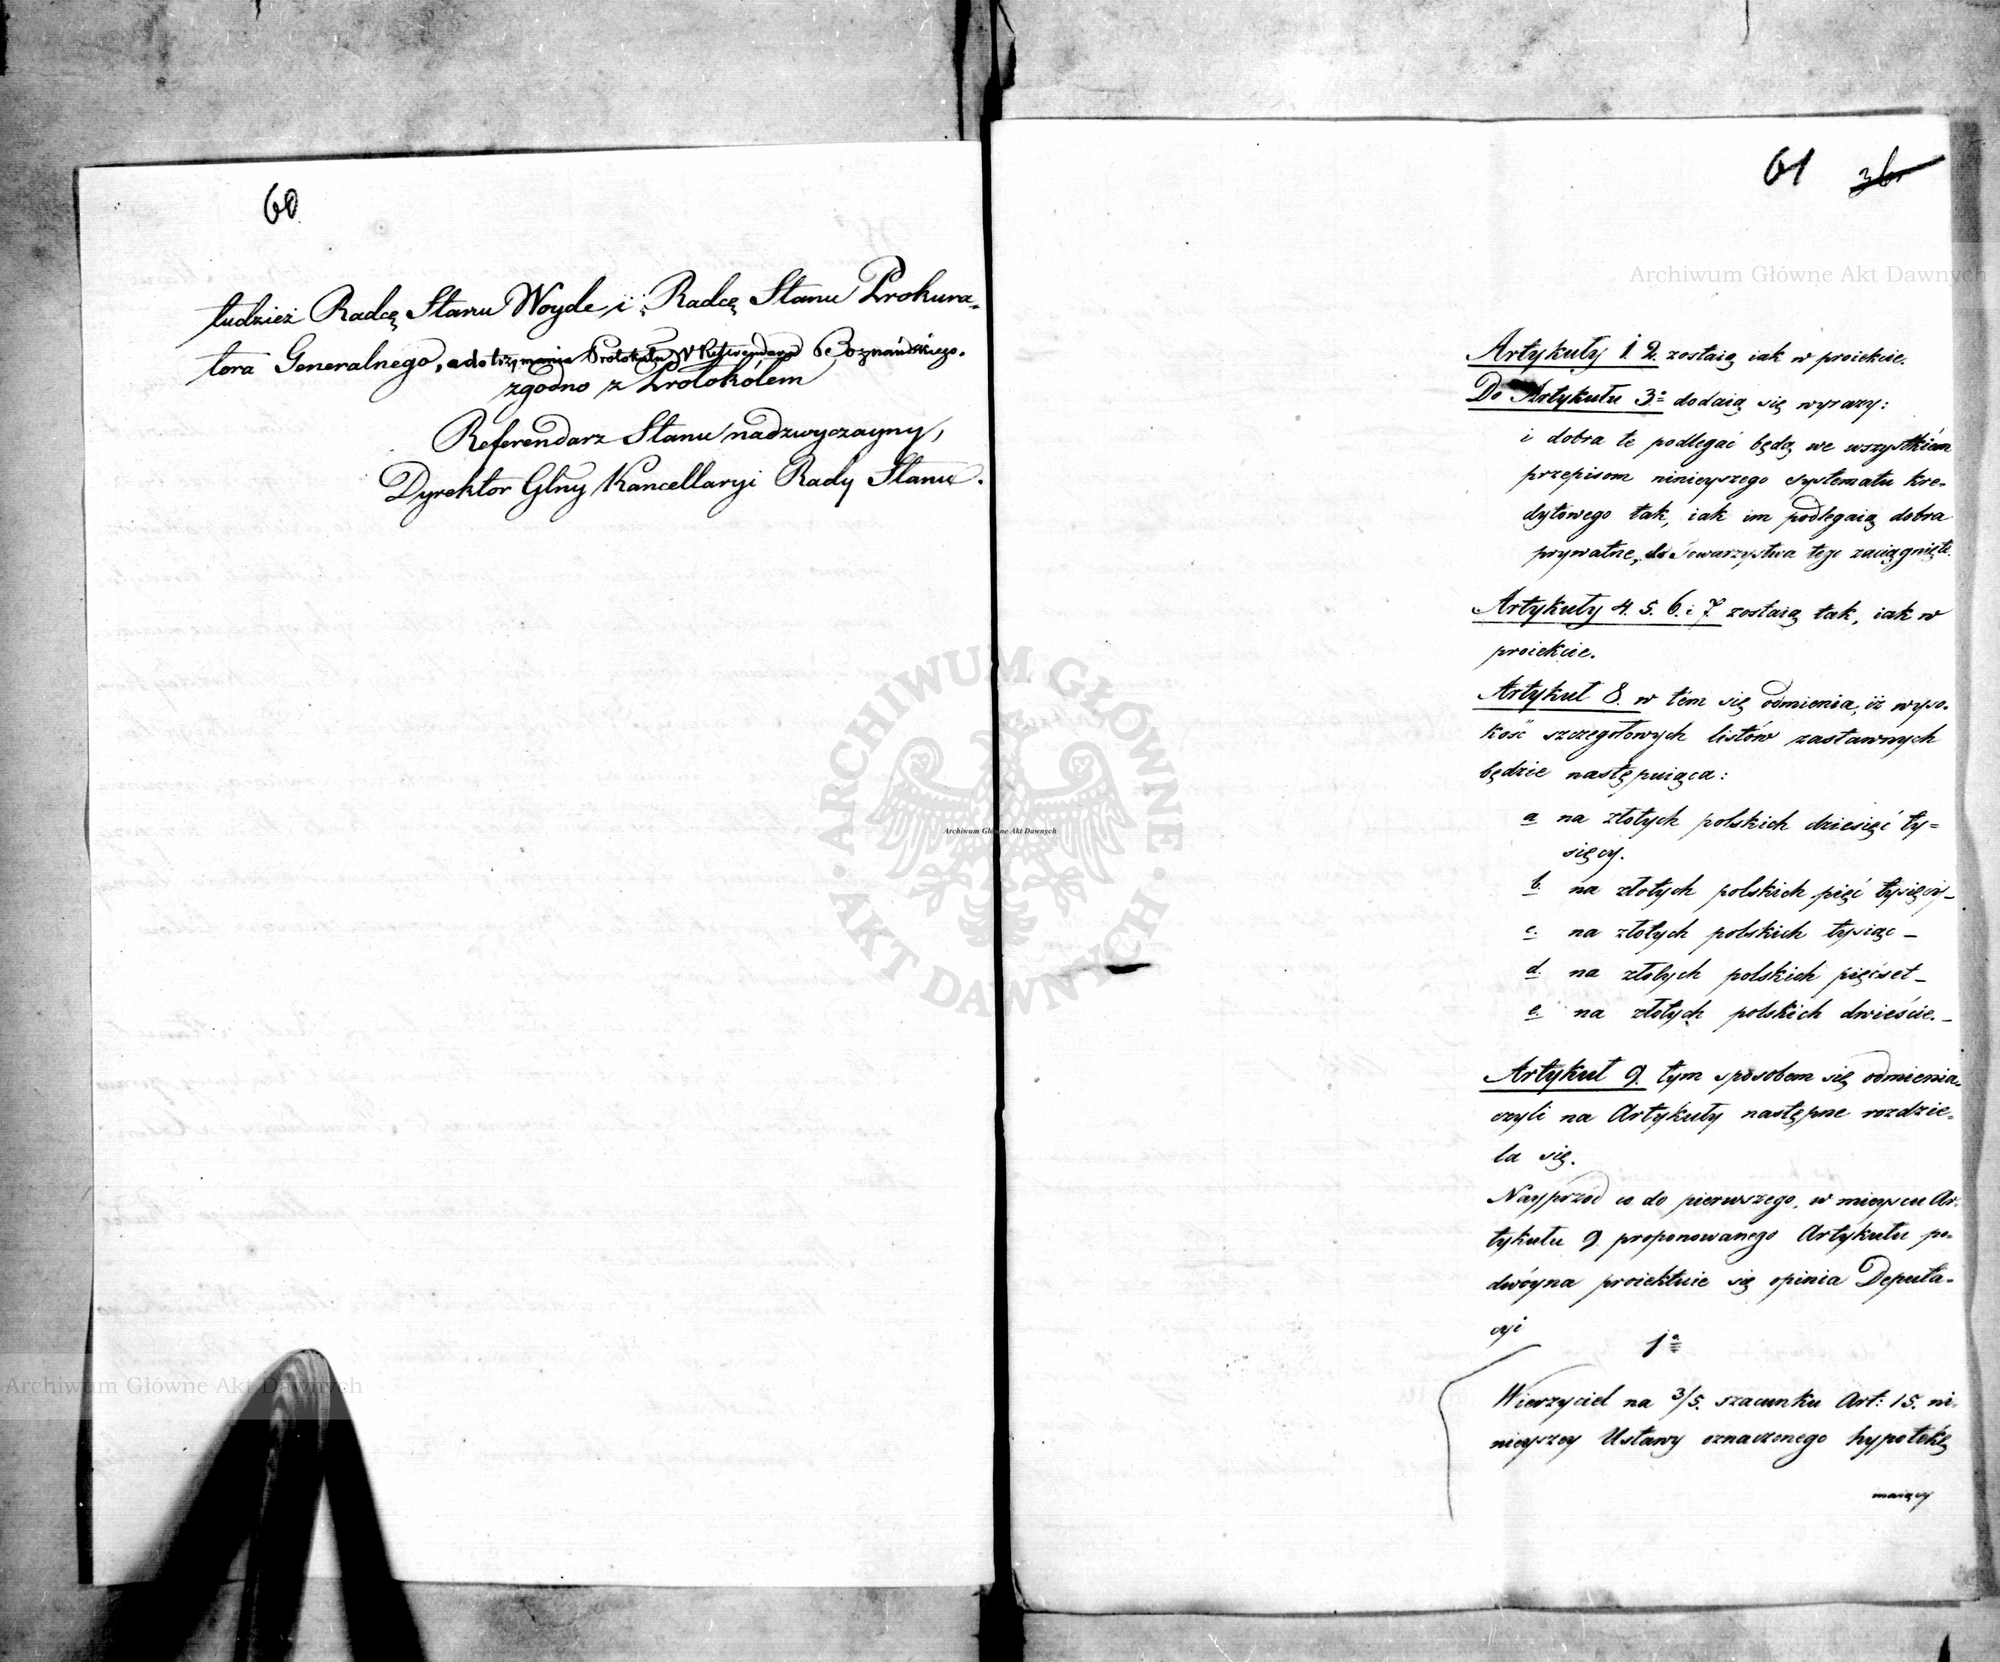 60
tudzież Radcę Stanu Woyde, i Radcę Stanu Prokura-
tora Generalnego, a do trzymania Protokułu Referendarza Boznańskiego.
zgodno z Protokółem
Referendarz Stanu nadzwyczayny,
Dyrektor Glny Kancellaryi Rady Stanu.
61 36
Artykuły 1. 2. zostaią iak w proiekcie.
Do Artykułu 3o dodaią się wyrazy:
i dobra te podlegać będą we wszystkiém
przepisom ninieyszego systematu kre-
dytowego tak, iak im podlegaią dobra
prywatne, do Towarzystwa tego zaciągnięte.
Artykuły 4. 5. 6. i 7. zostaią tak, iak w
proiekcie.
Artykuł 8. w tém się odmienia, iż wyso-
kość szczegółowych listów zastawnych
będzie następuiąca:
a na złotych polskich dziesięć ty=
sięcy.
b. na złotych polskich pięć tysięcy_
c. na złotych polskich tysiąc _
d. na złotych polskich pięćset _
e. na złotych polskich dwieście. _
Artykuł 9. tym sposobem się odmienia,
czyli na Artykuły następne rozdzie-
la się.
Nayprzód co do pierwszego, w mieyscu Ar-
tykułu 9. proponowanego Artykułu po-
dwóyna proiektuie się opinia Deputa-
cyi
1a
Wierzyciel na 3/5. szacunku Art: 15. ni-
nieyszey Ustawy oznaczonego hypotekę
maiący
Archiwum Główne Akt Dawnych
Archiwum Główne Akt Dawnych
Archiwum Główne Akt Dawnych
ARCHIWUM GŁÓWNE · AKT DAWNYCH ·